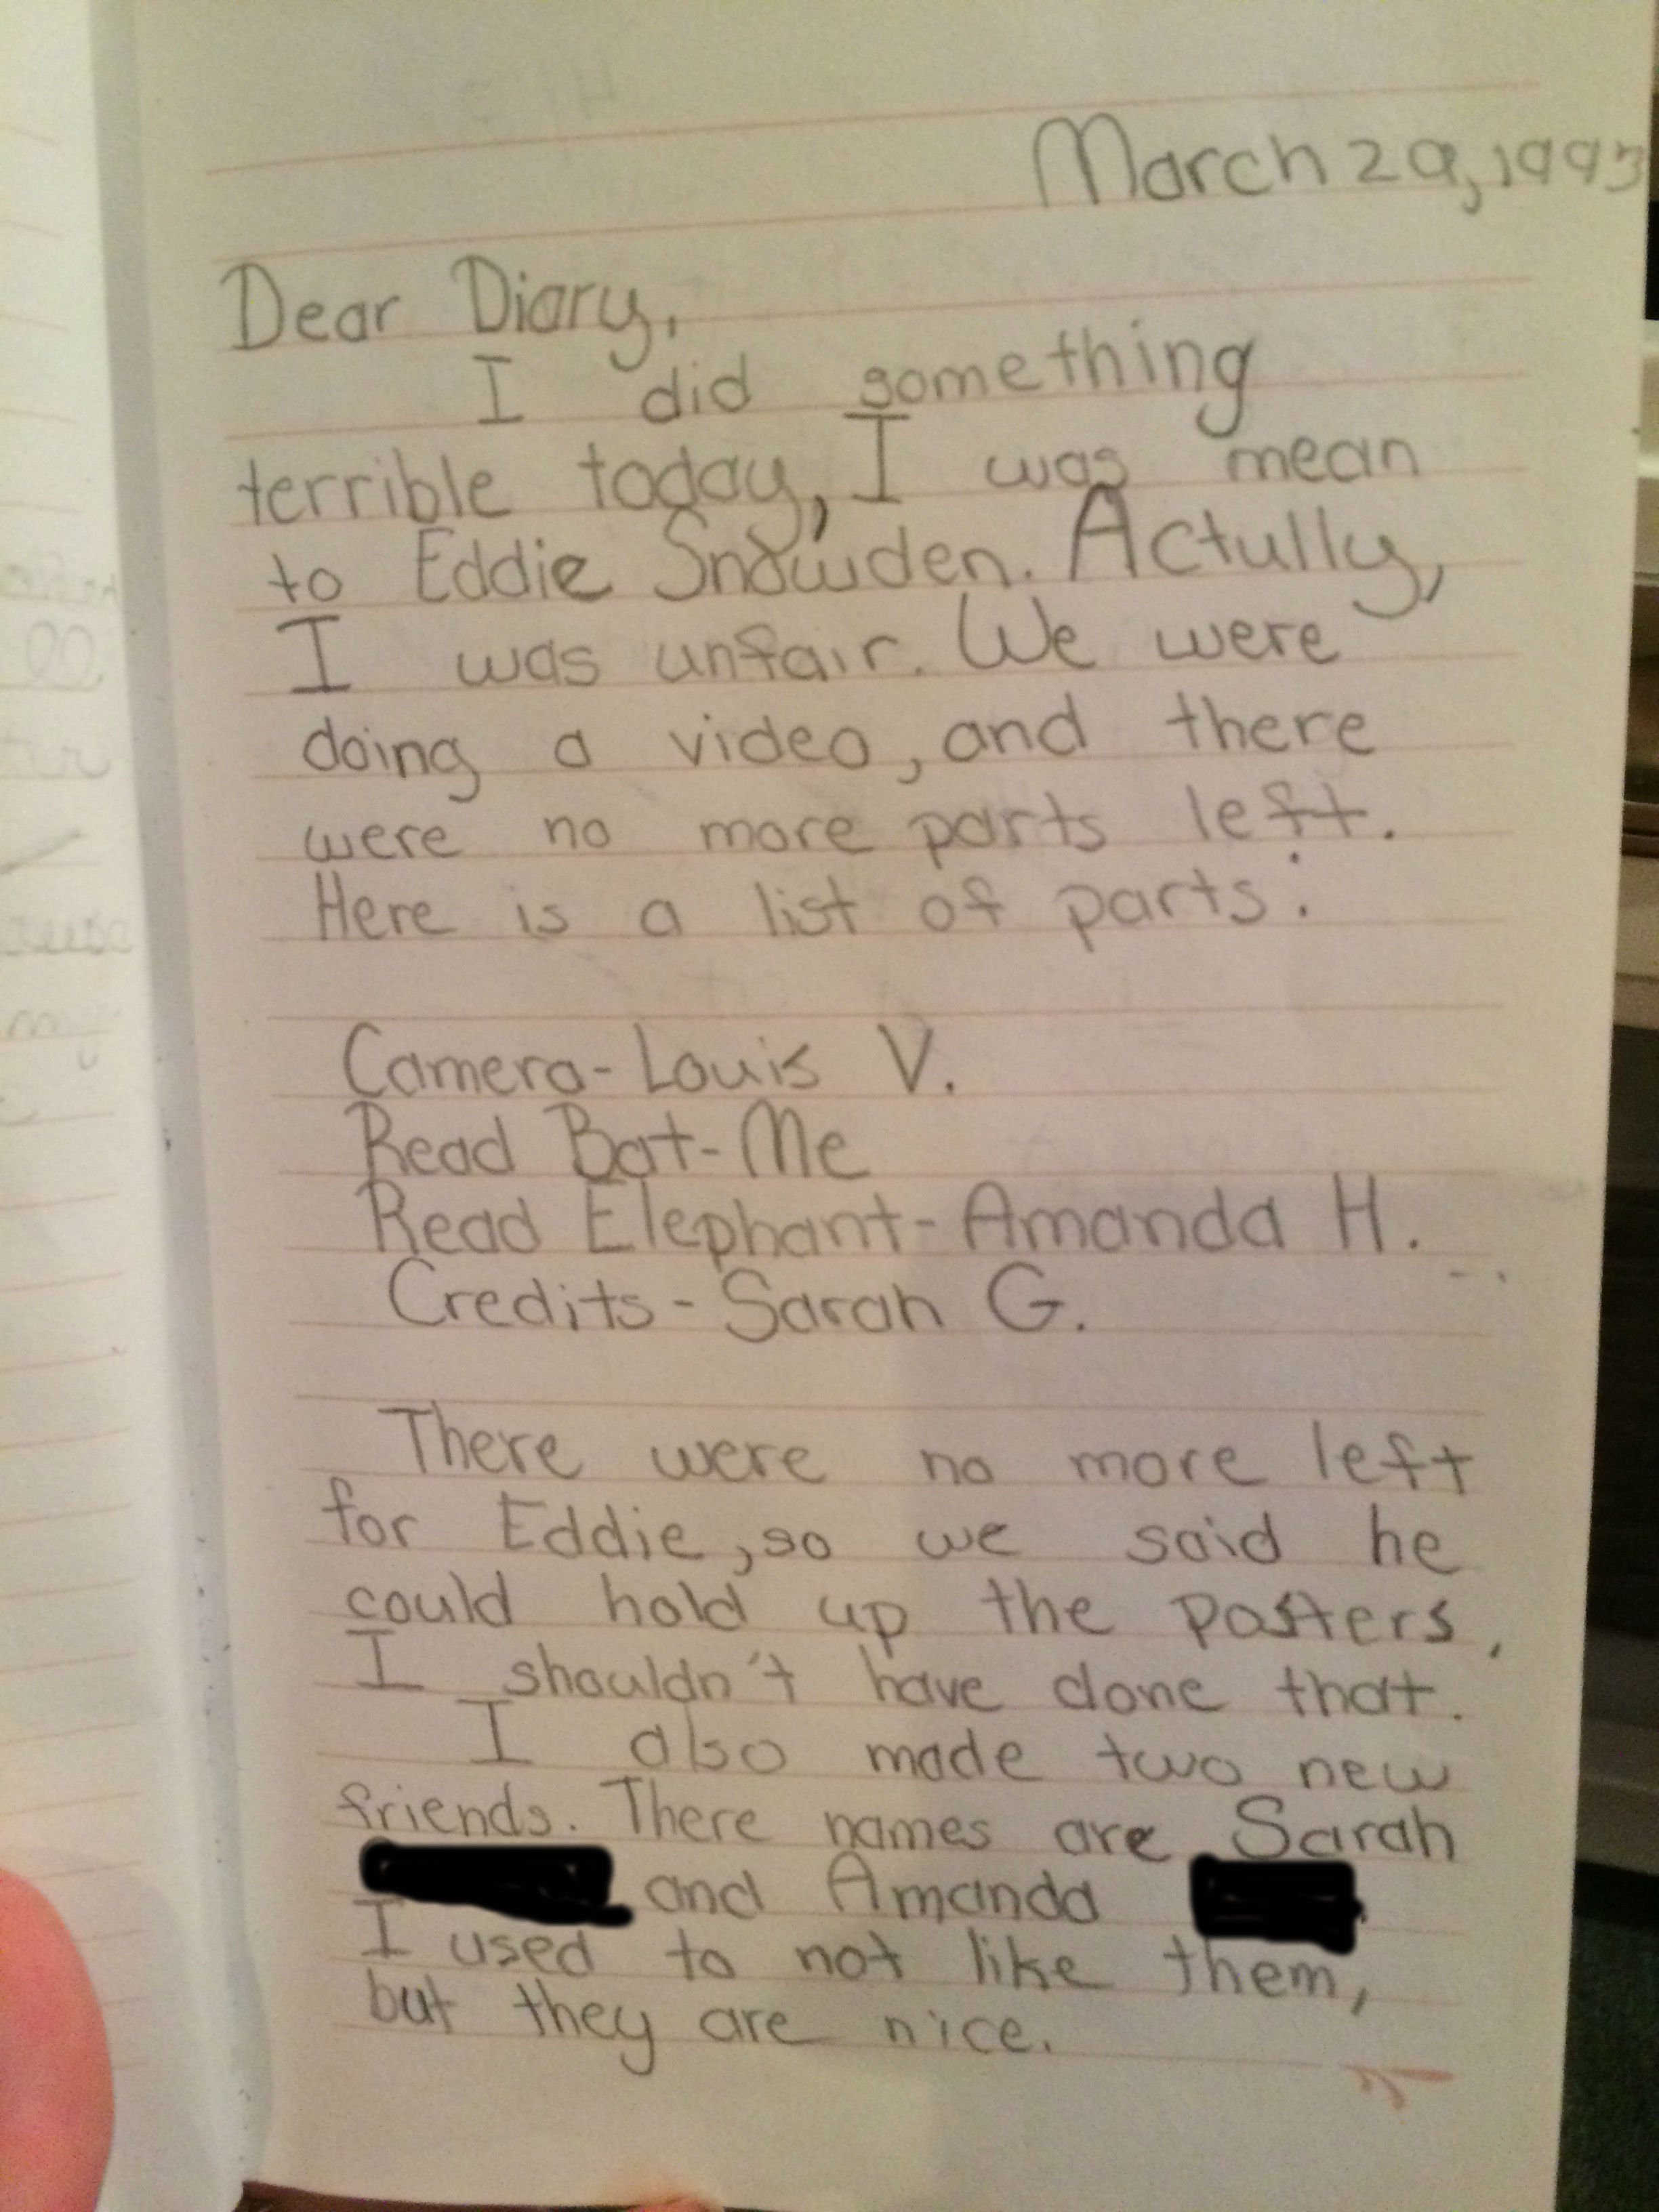 March 29, 1993
Dear Diary,
I did something
terrible today, I was mean
to Eddie Snowden. Actully,
I was unfair. We were
doing a video, and there
were no more parts left.
Here is a list of parts:
Camera-Louis V.
Read Bat-Me
Read Elephant-Amanda H.
Credits-Sarah G.
There were no more left
for Eddie, so we said he
could hold up the posters.
I shouldn't have done that.
I also made two new
friends. There names are Sarah
and Amanda
I used to not like them,
but they are nice.